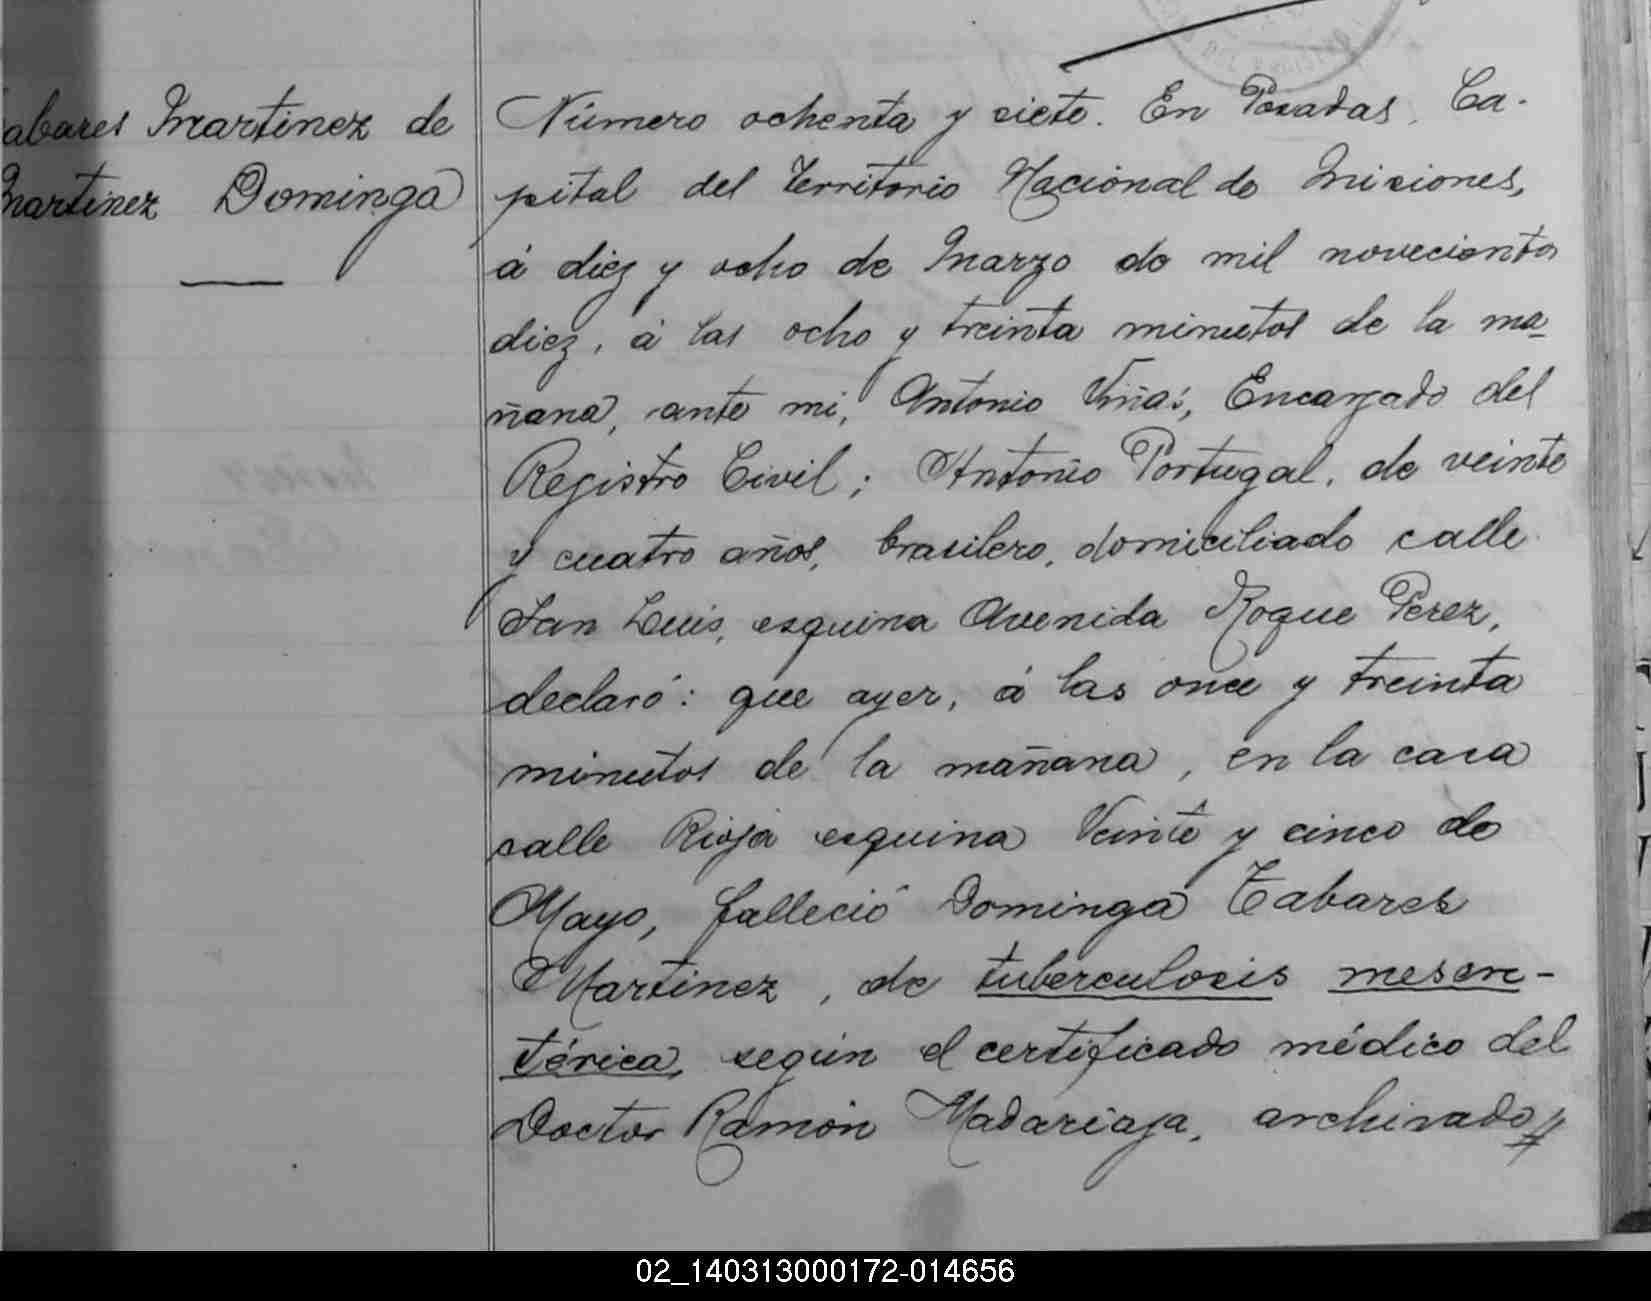 abares Martinez de
Martinez Dominga
Número ochenta y siete. En Posadas, Ca-
pital del Territorio Nacional de Misiones,
á diez y ocho de Marzo de mil novecientos
diez, á las ocho y treinta minutos de la ma-
ñana, ante mi, Antonio Viñas, Encargado del
Registro Civil; Antonio Portugal, de veinte
y cuatro años, brasilero, domiciliado calle
San Luis, esquina Avenida Roque Perez,
declaró: que ayer, á las once y treinta
minutos de la mañana, en la casa
calle Rioja esquina Veinte y cinco de
Mayo, falleció Dominga Tabares
Martinez, de tuberculosis mesen-
térica, según el certificado médico del
Doctor Ramón Madariaga, archivado
02_140313000172-014656